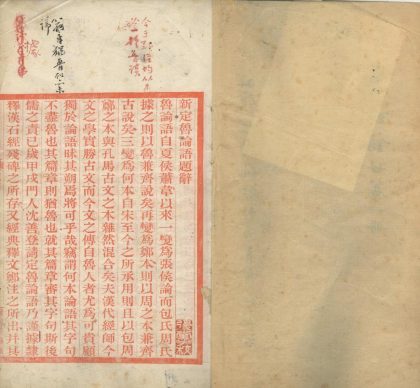 新定魯論語題辭
魯論語自夏侯蕭韋以來一變爲張矦論而包氏周氏
據之則以魯兼齊說矣再變爲鄭本則以周之本兼齊
古說矣三變爲何本自宋至今之所承用則且以包周
鄭之本與孔馬古文之本雜然混合矣夫漢代經師今
文之學實勝古文而今文之傳自魯人者尤爲可貴顧
獨於論語昧其朔焉將可乎哉竊謂何本論語其字句
不盡魯也其篇章則猶魯也就其篇章審其字句斯後
儒之責已歲甲戌門人沈善登請定魯論語乃謹據隸
釋漢石經殘碑之所存又經典釋文鄭注之所出幷其